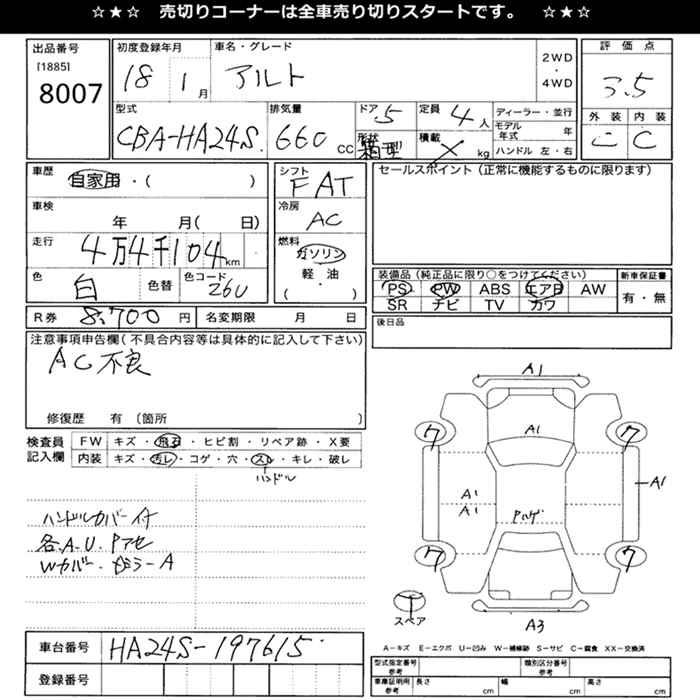 ☆★☆ 売切りコーナーは全車売り切りスタートです。 ☆★☆
出品番号
[1885]
8007
初度登録年月
18 1月
車名・グレード
アルト
2WD
・
4WD
評価点
3.5
外装 内装
C C
型式
CBA-HA24S
排気量
660 CC
ドア 5
形状
箱型
定員 4人
積載 X kg
ディーラー・並行
モデル年式 年
ハンドル 左・右
車歴
自家用・( )
車検
年 月( 日)
走行
4万4千104km
色
白
色替
色コード
26U
シフト
FAT
冷房
AC
燃料
ガソリン
軽・油
( )
セールスポイント(正常に機能するものに限ります)
装備品(純正品に限り○をつけてください)
PS PW ABS エアB AW
SR ナビ TV カワ
新車保証書
有・無
R券 8,700円
名変期限 月 日
後日品
注意事項申告欄(不具合内容等は具体的に記入して下さい)
AC不良
修復歴 有 〔箇所 〕
検査員
記入欄
FW キズ・飛石・ヒビ割・リペア跡・X要
内装 キズ・汚レ・コゲ・穴・スレ・キレ・破レ
ハンドル
ハンドルカバー付
各A.U.Pアセ
Wカバー・ガラーA
A1
ワ
ワ
A1
A1
A1
A1
Pハゲ
ワ
ワ
スペア
A3
A-キズ E-エクボ U-凹み W-補修跡 S-サビ C-腐食 XX-交換済
車台番号 HA24S-197615
登録番号
型式指定番号
参考
類別区分番号
参考
車庫証明用
参考
長さ cm
幅 cm
高さ cm